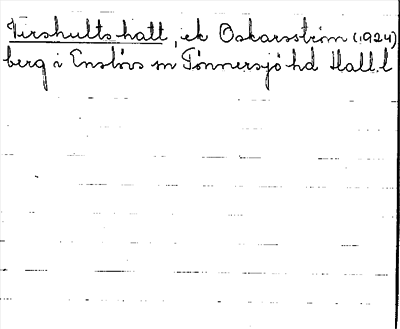 Virshults hatt, ek Oskarsström (1924)
berg i Enslövs sn Tönnersjö hd Hall.l